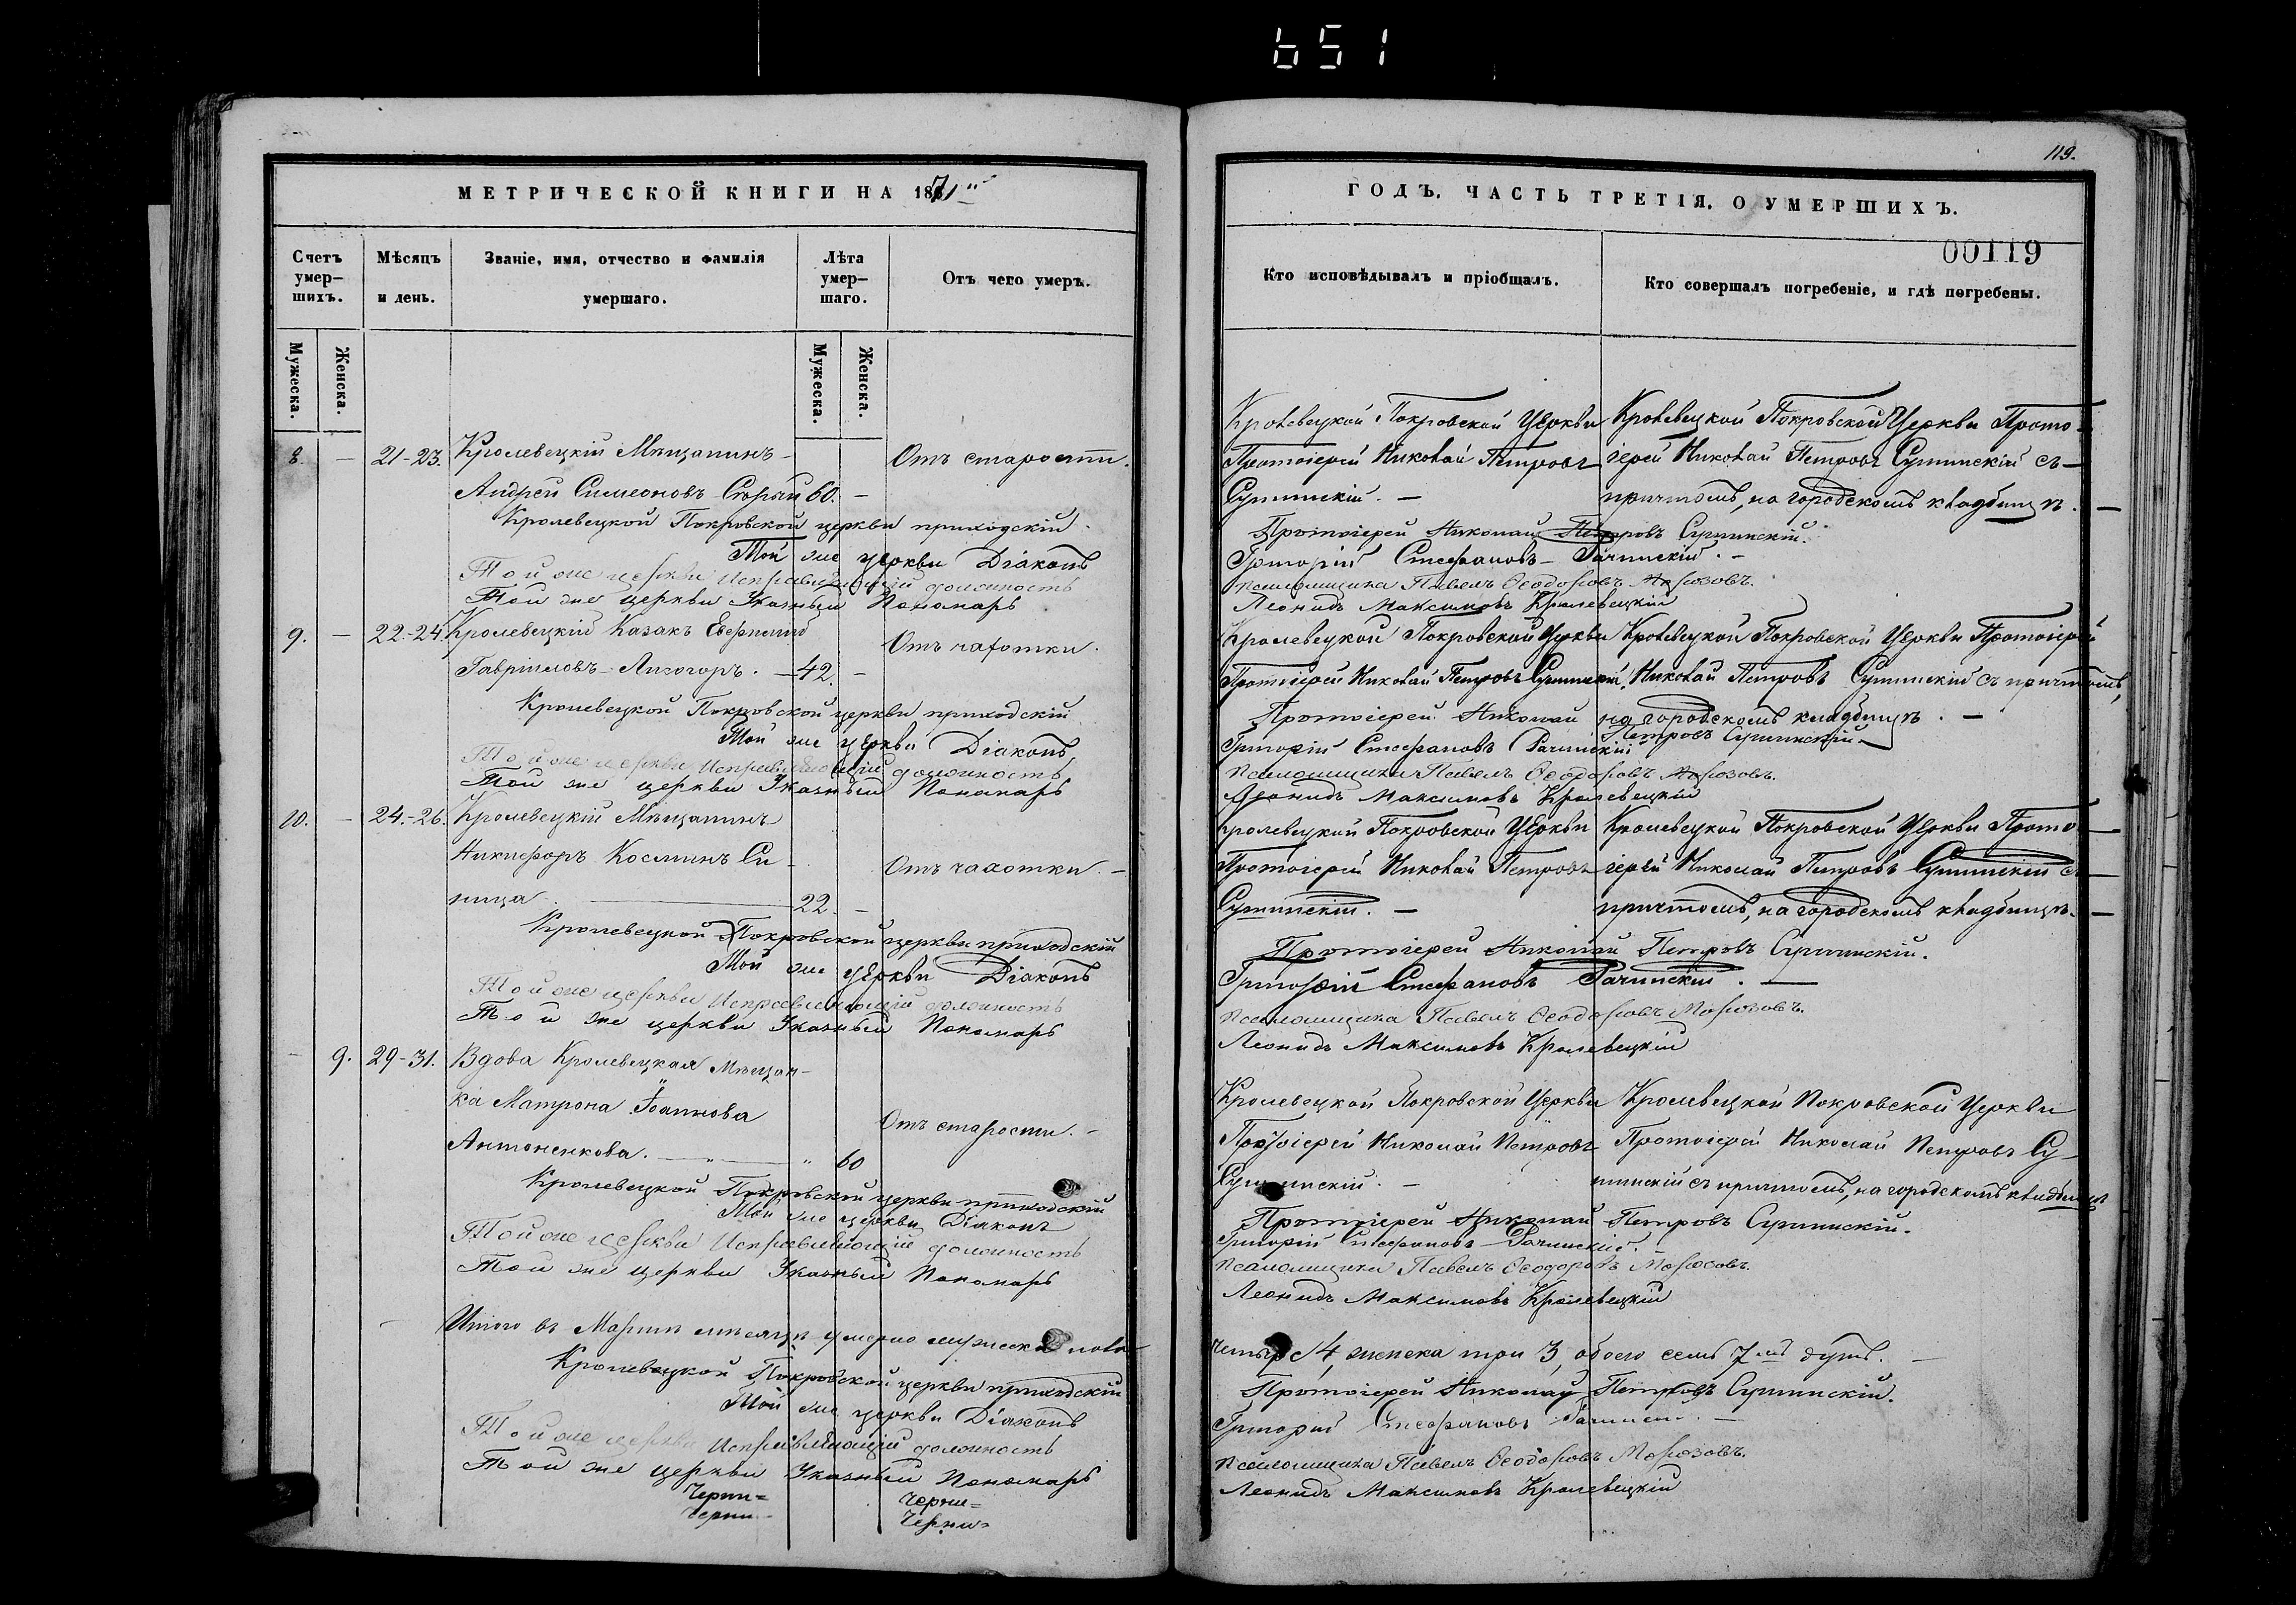 651
МЕТРИЧЕСКОЙ КНИГИ НА 1871
Счетъ умер-шихъ.
Мѣсяцъ и день.
Званіе, имя, отчество и фамилія умершаго.
Лѣта умер-шаго.
Отъ чего умеръ.
Мужеска.
Женска.
Мужеска.
Женска.
8. — 21-23. Кролевецкій Мѣщанинъ Отъ старости.
Андрей Симеоновъ 60. —
Кролевецкой Покровской церкви приходскій
Той же церкви Діаконъ
Той же церкви Исправляющій должность
Той же церкви Указный Пономарь
9. — 22-24. Кролевецкій Казакъ Отъ чахотки.
Гавріиловъ Лизогоръ. — 42. —
Кролевецкой Покровской церкви приходскій
Той же церкви Діаконъ
Той же церкви Исправляющій должность
Той же церкви Указный Пономарь
10. — 24-26. Кролевецкій Мѣщанинъ
Никифоръ Косминъ Си- Отъ чахотки. —
ница. 22. —
Кролевецкой Покровской церкви приходскій
Той же церкви Діаконъ
Той же церкви Исправляющій должность
Той же церкви Указный Пономарь
— 9. 29-31. Вдова Кролевецкая Мѣщан-
ка Матрона Іоаннова Отъ старости. —
Антоненкова. 60
Кролевецкой Покровской церкви приходскій
Той же церкви Діаконъ
Той же церкви Исправляющій должность
Той же церкви Указный Пономарь
Итого въ Мартѣ мѣсяцѣ умерло мужеска пола
Кролевецкой Покровской церкви приходскій
Той же церкви Діаконъ
Той же церкви Исправляющій должность
Той же церкви Указный Пономарь
119.
ГОДЪ. ЧАСТЬ ТРЕТІЯ. О УМЕРШИХЪ.
00119
Кто исповѣдывалъ и пріобщалъ.
Кто совершалъ погребеніе, и гдѣ погребены.
Кролевецкой Покровской Церкви Кролевецкой Покровской Церкви Прото-
Протоіерей Николай Петровъ іерей Николай Петровъ съ
причтомъ, на городскомъ кладбищѣ. —
Протоіерей Николай Петровъ
Григорій Стефановъ Рачинскій. —
псаломщика Павелъ Ѳеодоровъ Морозовъ.
Леонидъ Максимовъ Кролевецкій
Кролевецкой Покровской Церкви Кролевецкой Покровской Церкви Протоіерей
Протоіерей Николай Петровъ Николай Петровъ съ причтомъ,
Протоіерей Николай на городскомъ кладбищѣ. —
Петровъ
Григорій Стефановъ Рачинскій
псаломщика Павелъ Ѳеодоровъ Морозовъ.
Леонидъ Максимовъ Кролевецкій
Кролевецкой Покровской Церкви Кролевецкой Покровской Церкви Прото-
Протоіерей Николай Петровъ іерей Николай Петровъ съ
причтомъ, на городскомъ кладбищѣ. —
Протоіерей Николай Петровъ
Григорій Стефановъ Рачинскій. —
псаломщика Павелъ Ѳеодоровъ Морозовъ.
Леонидъ Максимовъ Кролевецкій
Кролевецкой Покровской Церкви Кролевецкой Покровской Церкви
Протоіерей Николай Петровъ Протоіерей Николай Петровъ
съ причтомъ, на городскомъ кладбищѣ
Протоіерей Николай Петровъ
Григорій Стефановъ Рачинскій.
псаломщика Павелъ Ѳеодоровъ Морозовъ.
Леонидъ Максимовъ Кролевецкій
четыре 4, женска три 3, обоего семь 7 душъ. —
Протоіерей Николай Петровъ
Григорій Стефановъ
псаломщика Павелъ Ѳеодоровъ Морозовъ.
Леонидъ Максимовъ Кролевецкій